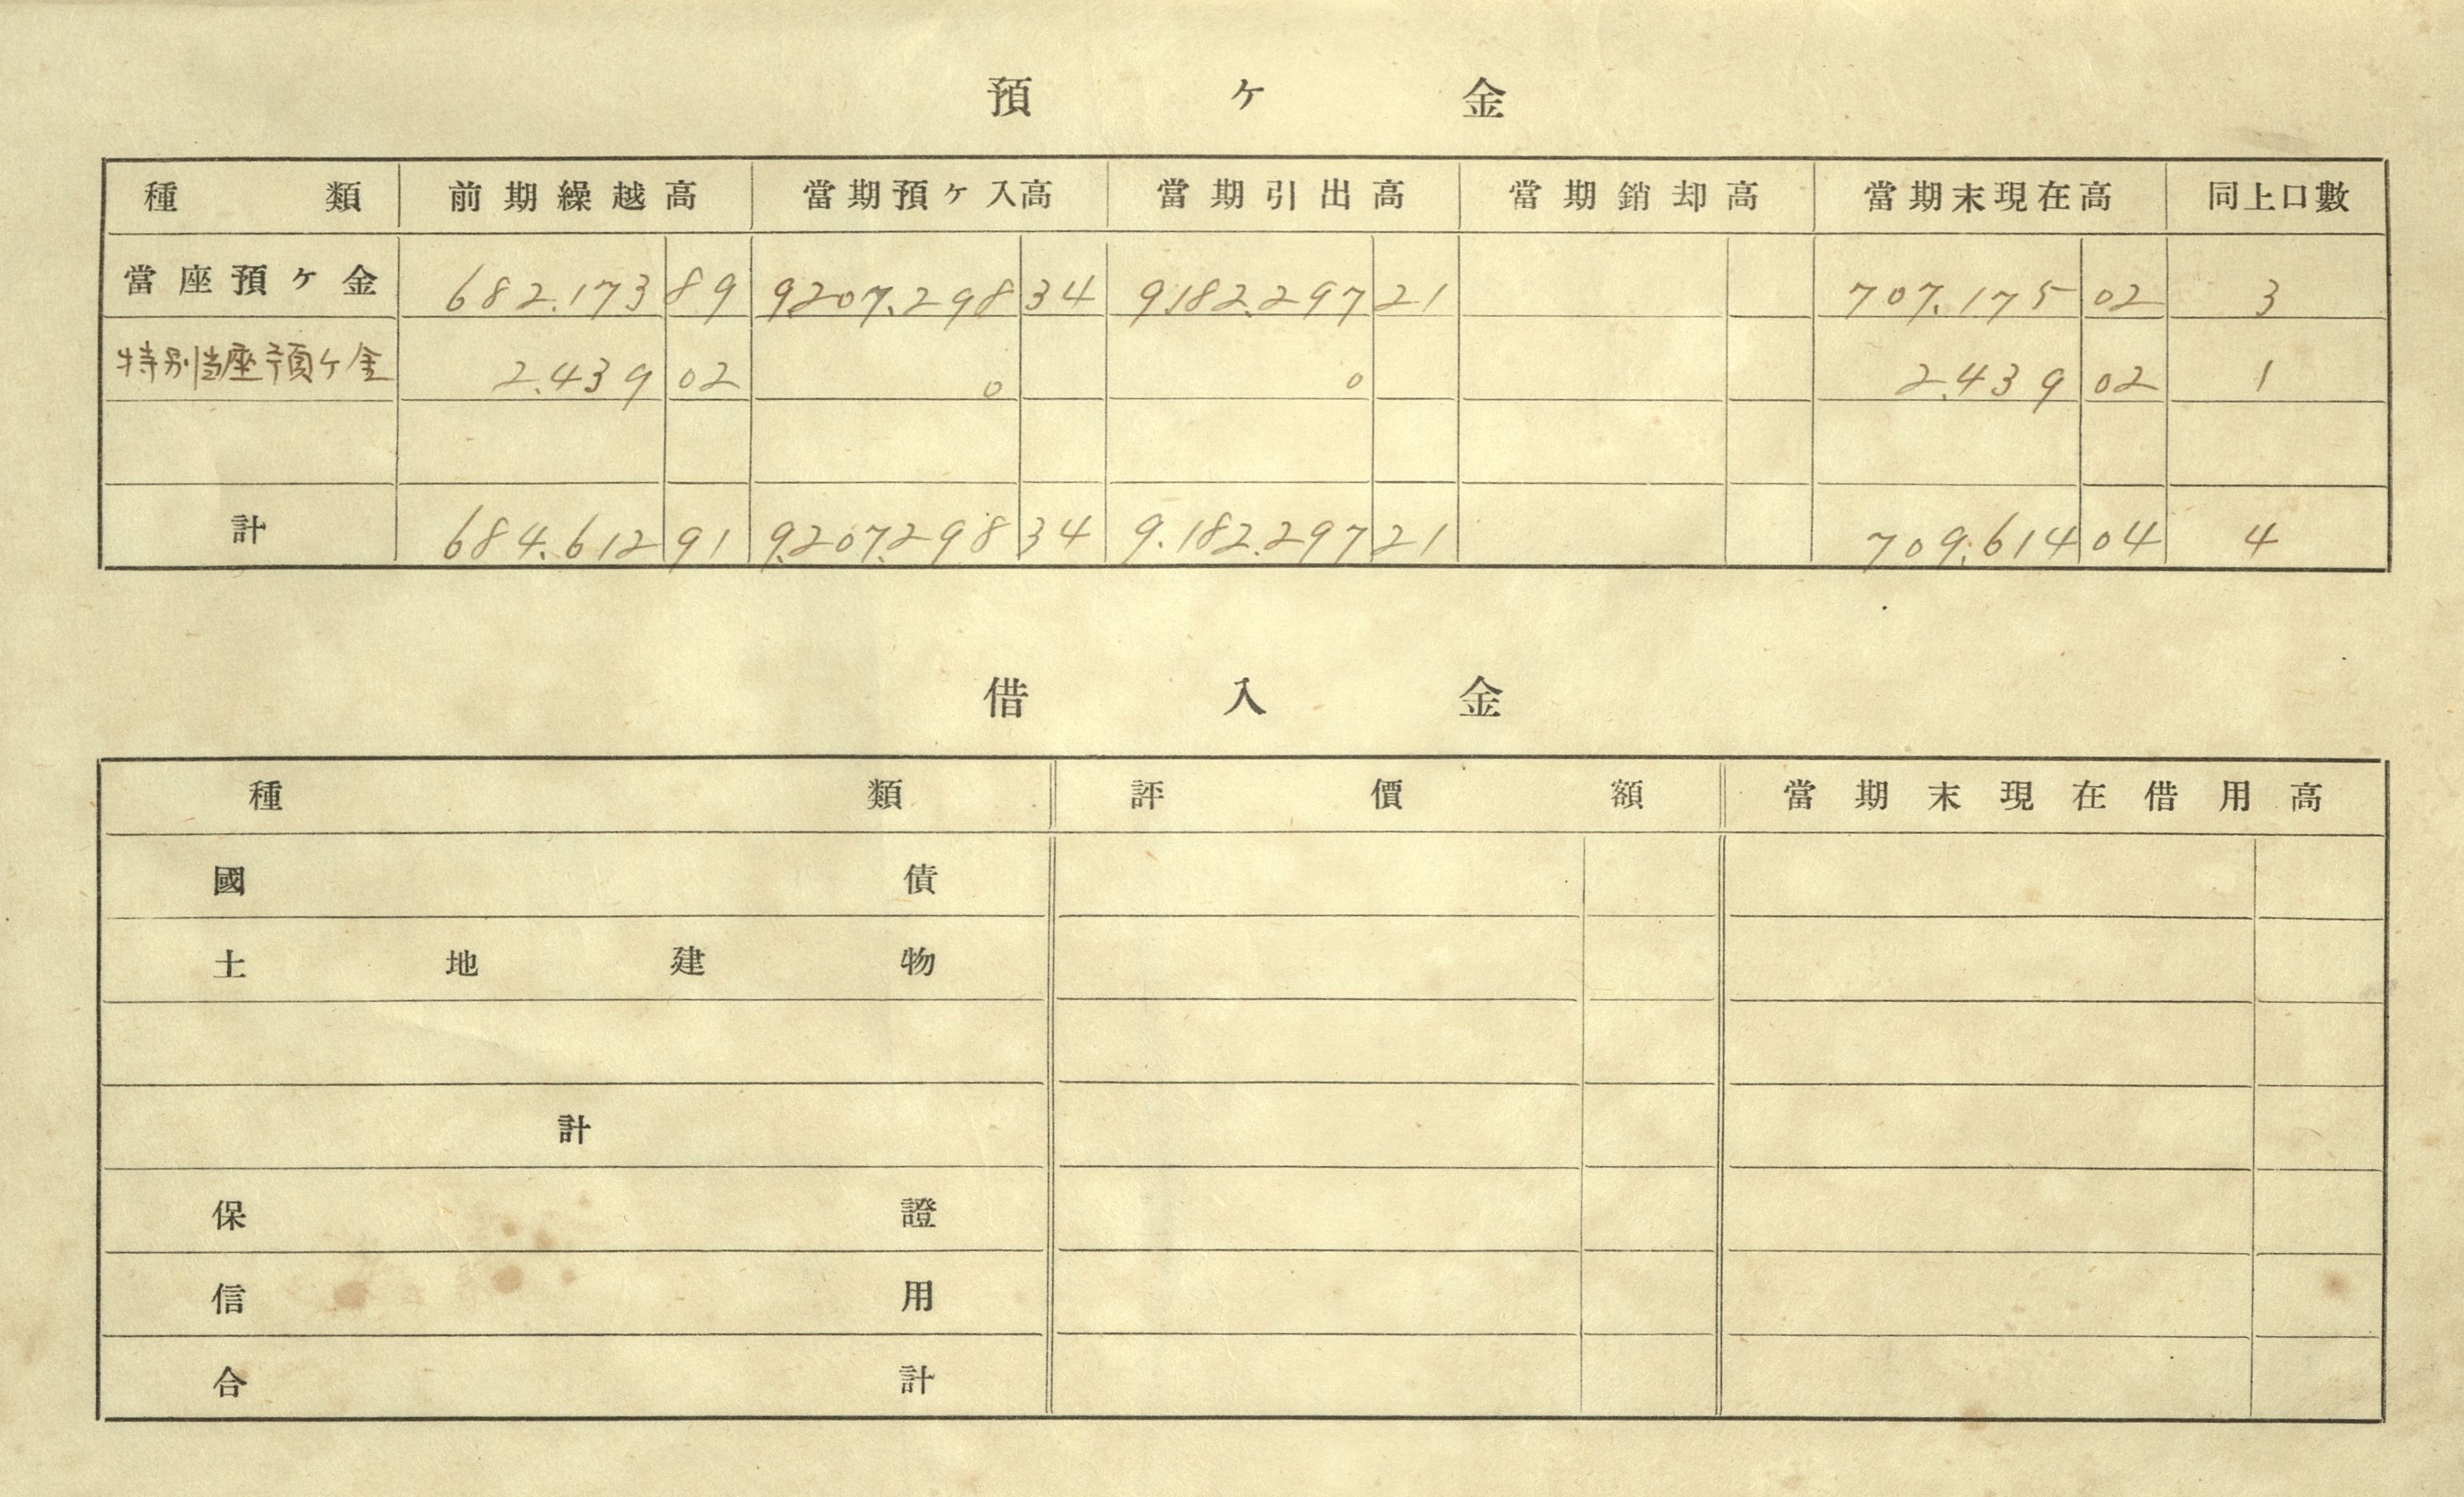 預ケ金
種類 前期繰越高 當期預ケ入高 當期引出高 當期銷却高 當期末現在高 同上口數
當座預ケ金 682.173 89 9207.298 34 9.182.297 21 707.175 02 3
特別当座預ケ金 2.439 02 0 0 2.439 02 1
計 684.612 91 9.207.298 34 9.182.297 21 709.614 04 4
借入金
種類 評價額 當期末現在借用高
國債
土地建物
計
保證
信用
合計